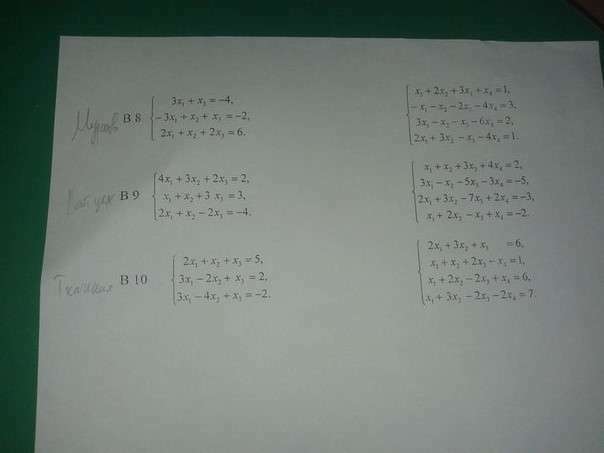 В 8
3x₁ + x₃ = −4,
−3x₁ + x₂ + x₃ = −2,
2x₁ + x₂ + 2x₃ = 6.
x₁ + 2x₂ + 3x₃ + x₄ = 1,
−x₁ − x₂ − 2x₃ − 4x₄ = 3,
3x₁ − x₂ − x₃ − 6x₄ = 2,
2x₁ + 3x₂ − x₃ − 4x₄ = 1.
В 9
4x₁ + 3x₂ + 2x₃ = 2,
x₁ + x₂ + 3 x₃ = 3,
2x₁ + x₂ − 2x₃ = −4.
x₁ + x₂ + 3x₃ + 4x₄ = 2,
3x₁ − x₂ − 5x₃ − 3x₄ = −5,
2x₁ + 3x₂ − 7x₃ + 2x₄ = −3,
x₁ + 2x₂ − x₃ + x₄ = −2.
В 10
2x₁ + x₂ + x₃ = 5,
3x₁ − 2x₂ + x₃ = 2,
3x₁ − 4x₂ + x₃ = −2.
2x₁ + 3x₂ + x₃ = 6,
x₁ + x₂ + 2x₃ − x₄ = 1,
x₁ + 2x₂ − 2x₃ + x₄ = 6,
x₁ + 3x₂ − 2x₃ − 2x₄ = 7.